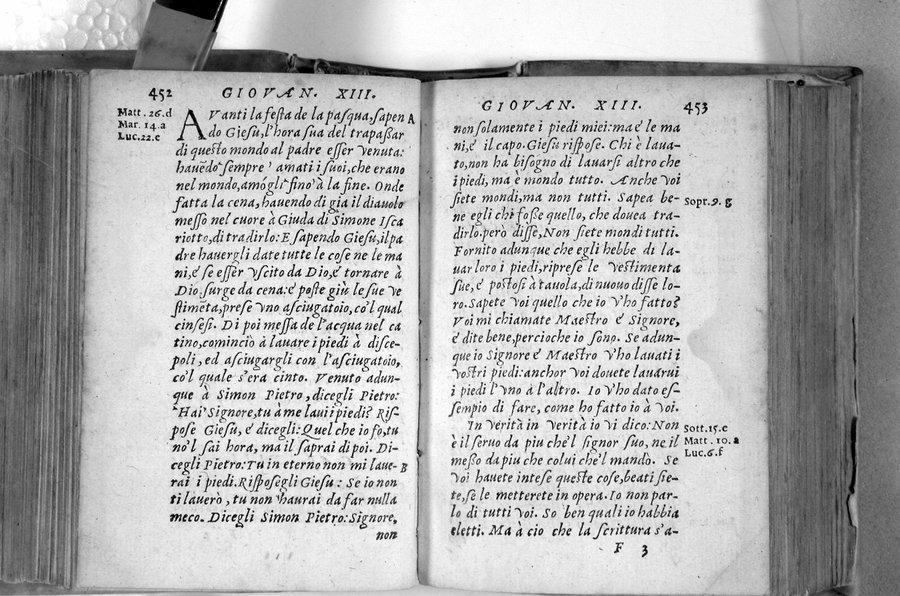 452 GIOVAN. XIII.
Matt. 26.d
Mar. 14.a
Luc. 22.e
AVanti la festa de la pasqua, sapen A
do Giesu, l'hora sua del trapaßar
di questo mondo al padre esser venuta:
hauēdo sempre amati i suoi, che erano
nel mondo, amògli fino à la fine. Onde
fatta la cena, hauendo di già il diauolo
messo nel cuore à Giuda di Simone Isca
riotto, di tradirlo: E sapendo Giesu, il pa
dre hauergli date tutte le cose ne le ma
ni, e se esser vscito da Dio, e tornare à
Dio. surge da cena: e poste giù le sue ve
stimēta, prese vno asciugatoio, co'l qual
cinsesi. Di poi messa de l'acqua nel ca
tino, cominciò à lauare i piedi à disce-
poli, ed asciugargli con l'asciugatoio,
co'l quale s'era cinto. Venuto adun-
que à Simon Pietro, dicegli Pietro:
Hai Signore, tu à me laui i piedi? Ris-
pose Giesu, e dicegli: Quel che io fo, tu
no'l sai hora, ma il saprai di poi. Di-
cegli Pietro: Tu in eterno non mi laue- B
rai i piedi. Risposegli Giesu: Se io non
ti lauerò, tu non haurai da far nulla
meco. Dicegli Simon Pietro: Signore,
non
GIOVAN. XIII. 453
non solamente i piedi miei: ma e le ma
ni, e il capo. Giesu rispose. Chi è laua-
to, non ha bisogno di lauarsi altro che
i piedi, ma è mondo tutto. Anche voi
siete mondi, ma non tutti. Sapea be-
Sopr. 9. g
ne egli chi foße quello, che douea tra-
dirlo. però disse, Non siete mondi tutti.
Fornito adunque che egli hebbe di la-
uar loro i piedi, riprese le vestimenta
sue, e postosi à tauola, di nuouo disse lo-
ro. Sapete voi quello che io v'ho fatto?
Voi mi chiamate Maestro e Signore,
e dite bene, percioche io sono. Se adun-
que io Signore e Maestro v'ho lauati i
vostri piedi: anchor voi douete lauarui
i piedi l'vno à l'altro. Io v'ho dato es-
sempio di fare, come ho fatto io à voi.
In verità in verità io vi dico: Non
Sott. 15. e
è il seruo da piu che'l signor suo, ne il
Matt. 10. a
meßo da piu che colui che'l mandò. Se
Luc. 6. f
voi hauete intese queste cose, beati sie-
te, se le metterete in opera. Io non par-
lo di tutti voi. So ben quali io habbia
eletti. Ma à cio che la scrittura s'a-
F 3